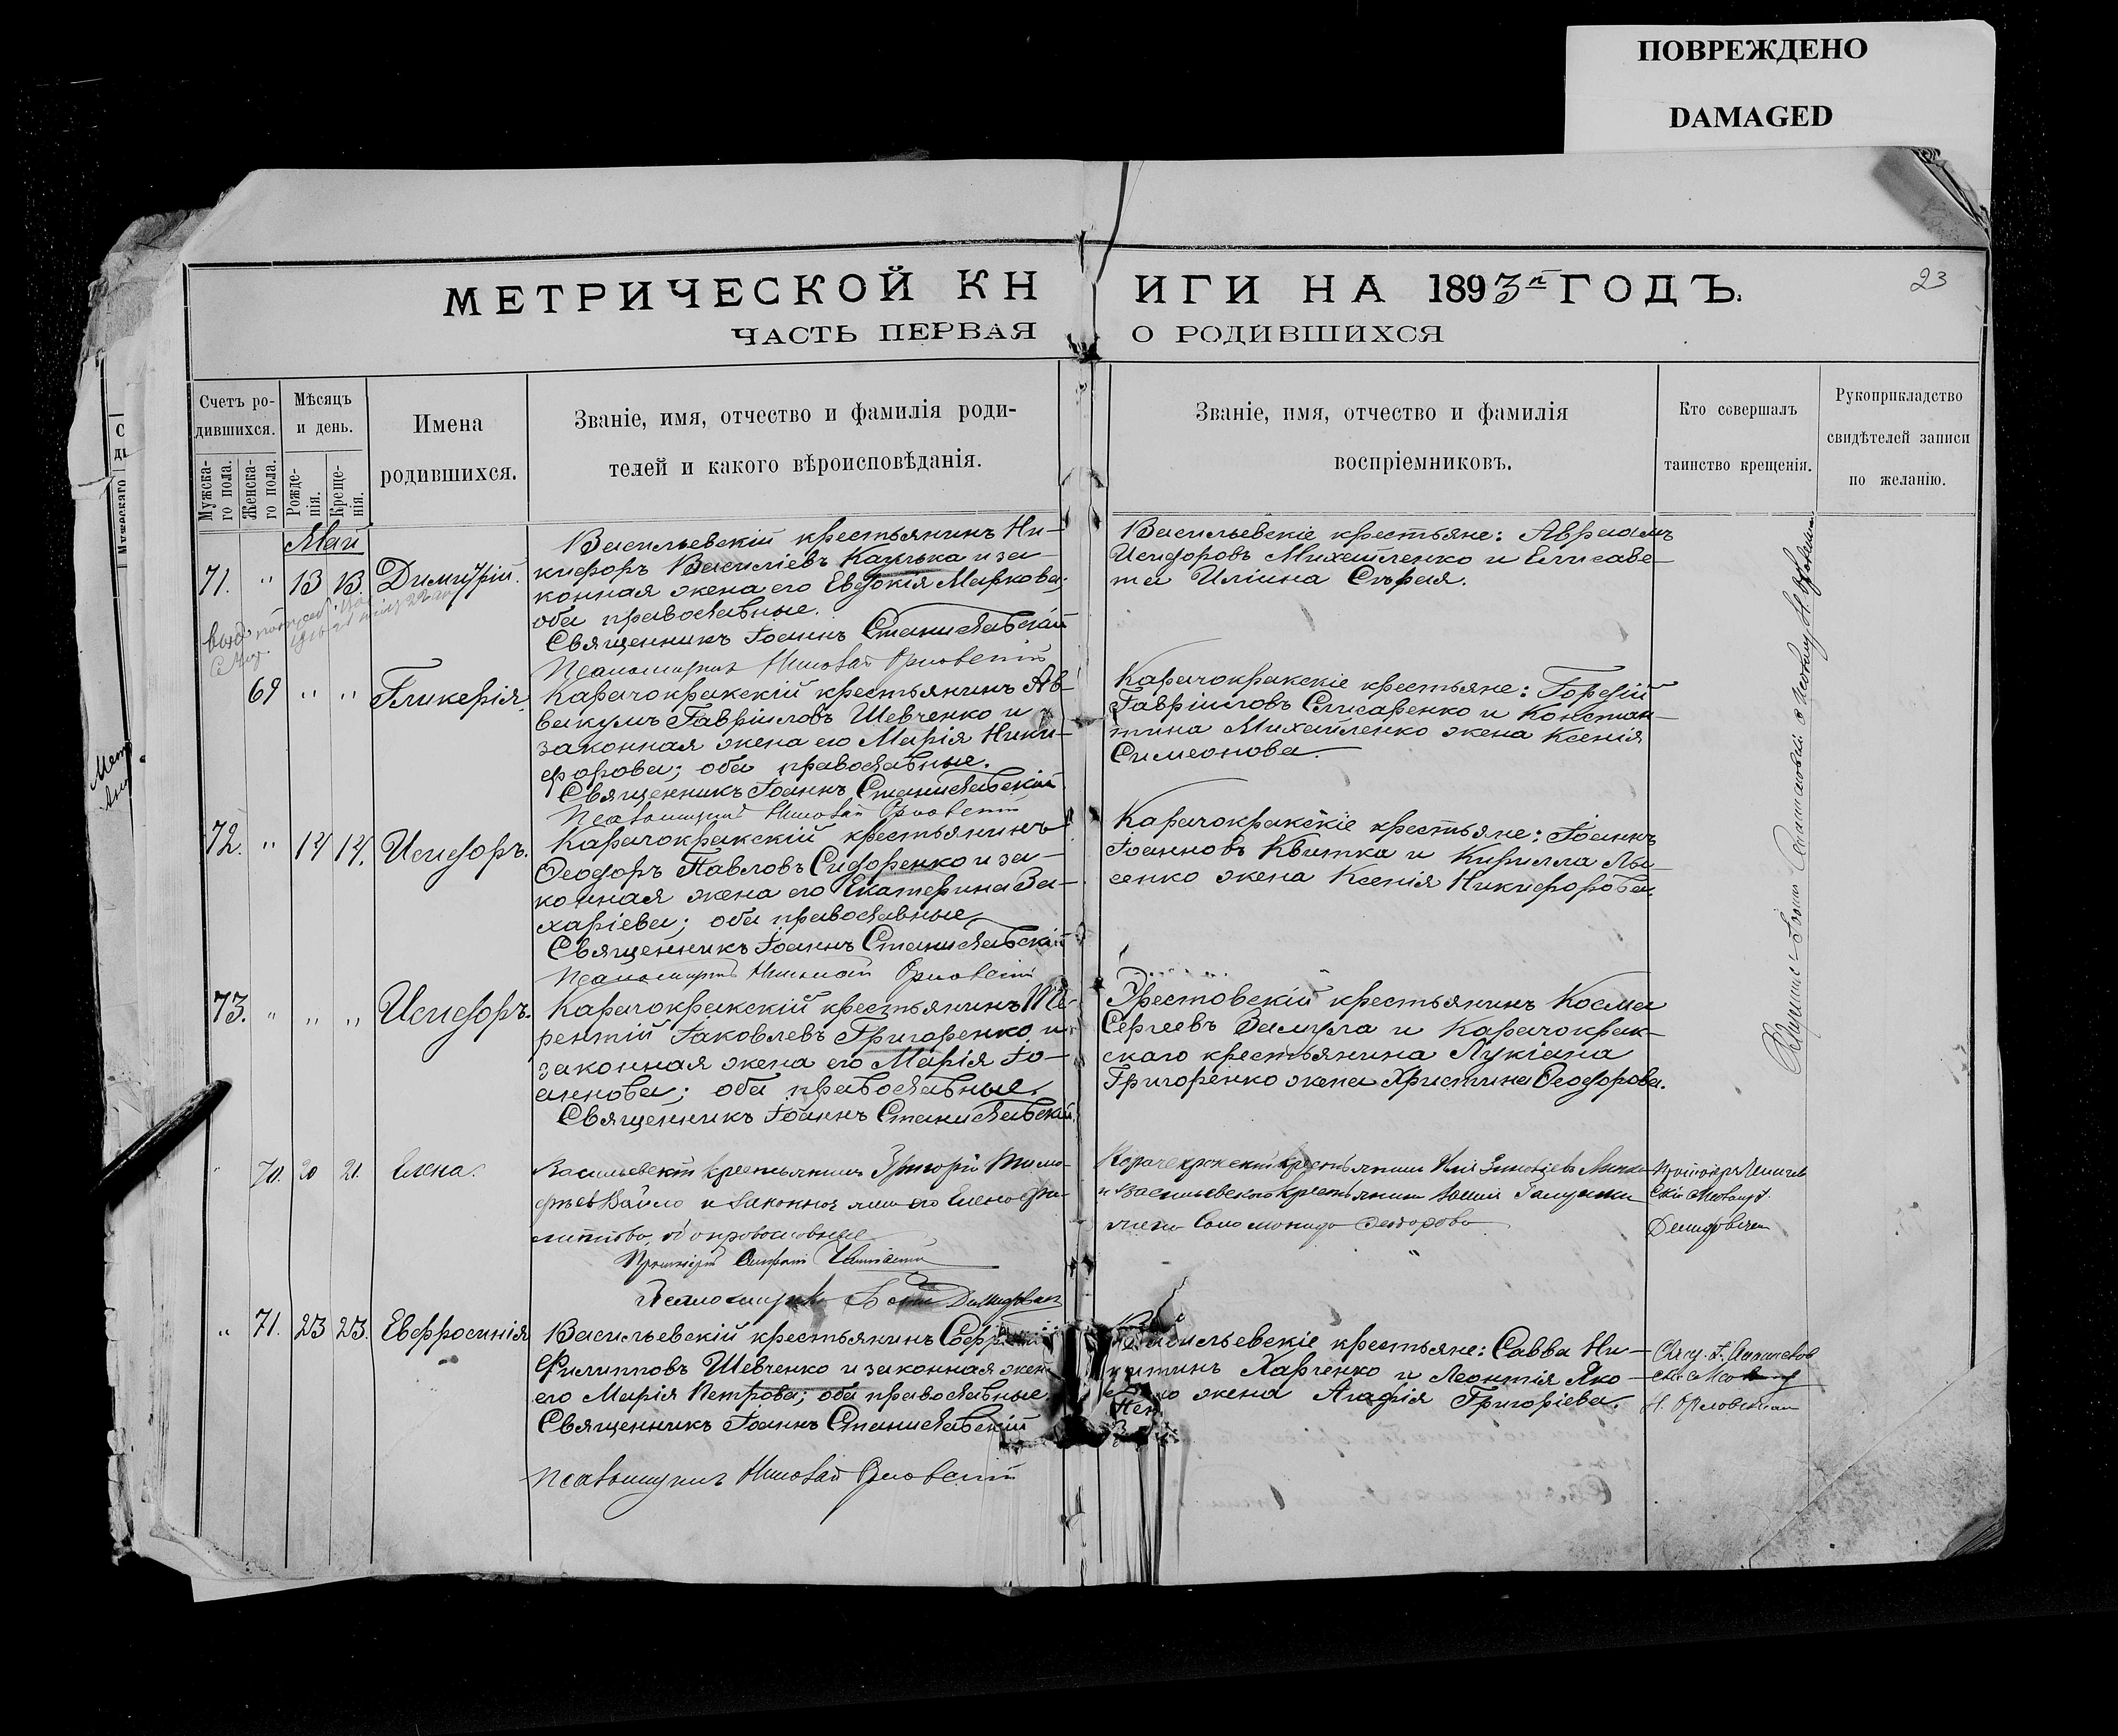 ПОВРЕЖДЕНО
DAMAGED
МЕТРИЧЕСКОЙ КНИГИ НА 1893й ГОДЪ.
23
ЧАСТЬ ПЕРВАЯ О РОДИВШИХСЯ
Счетъ родившихся.
Мужскаго пола.
Женскаго пола.
Мѣсяцъ и день.
Рожденія.
Крещенія.
Имена родившихся.
Званіе, имя, отчество и фамилія родителей и какого вѣроисповѣданія.
Званіе, имя, отчество и фамилія воспріемниковъ.
Кто совершалъ таинство крещенія.
Рукоприкладство свидѣтелей записи по желанію.
Май
71. " 13 13. Димитрій.
Васильевскій крестьянинъ Ни-
кифоръ Василіевъ и за-
конная жена его Евдокія Маркова;
оба православные.
Священникъ Іоаннъ Станиславскій
Псаломщикъ Николай Орловскій
Васильевскіе крестьяне: Авраамъ
Исидоровъ Михайленко и Елисаве-
та Иліина Сѣрая.
69 " " Гликерія.
Карачокракскій крестьянинъ Ав-
вакумъ Гавріиловъ Шевченко и
законная жена его Марія Ники-
форова; оба православные.
Священникъ Іоаннъ Станиславскій
Псаломщикъ Николай Орловскій
Карачокракскіе крестьяне: Гордій
Гавріиловъ Слисаренко и Констан-
тина Михайленко жена Ксенія
Симеонова.
72. " 14 14. Исидоръ.
Карачокракскій крестьянинъ
Ѳеодоръ Павловъ Сидоренко и за-
конная жена его Екатерина За-
харіева; оба православные.
Священникъ Іоаннъ Станиславскій
Псаломщикъ Николай Орловскій
Карачокракскіе крестьяне: Іоаннъ
Іоанновъ Квитка и Кирилла Лы-
сенко жена Ксенія Никифорова.
73. " " " Исидоръ.
Карачокракскій крестьянинъ Те-
рентій Іаковлевъ Григоренко и
законная жена его Марія Іо-
аннова; оба православные.
Священникъ Іоаннъ Станиславскій
крестьянинъ Косма
Сергеевъ и Карачокрак-
скаго крестьянина Лукіана
Григоренко жена Христина Ѳеодорова.
" 70. 20 21. Елена.
Васильевскій крестьянинъ Григорій Тимо-
феевъ и законная жена его Елена
оба православные
Псаломщикъ Демидовичъ
Карачекракскій крестьянинъ
и Васильевскаго крестьянина
жена Соломонида Феодорова
Демидовичем
" 71. 23 23. Евфросинія
Васильевскій крестьянинъ
Филипповъ Шевченко и законная жена
его Марія Петрова; оба православные
Священникъ Іоаннъ Станиславскій
Псаломщикъ Николай Орловскій
Васильевскіе крестьяне: Савва Ни-
китинъ Харченко и Леонтія Яко-
жена Агафія Григоріева.
Н. Орловским